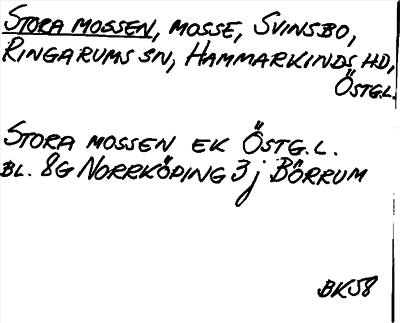 STORA MOSSEN, MOSSE, SVINSBO,
RINGARUMS SN, HAMMARKINDS HD,
ÖSTG.L.
STORA MOSSEN EK ÖSTG.L.
BL. 8G NORRKÖPING 3j BÖRRUM
BK58